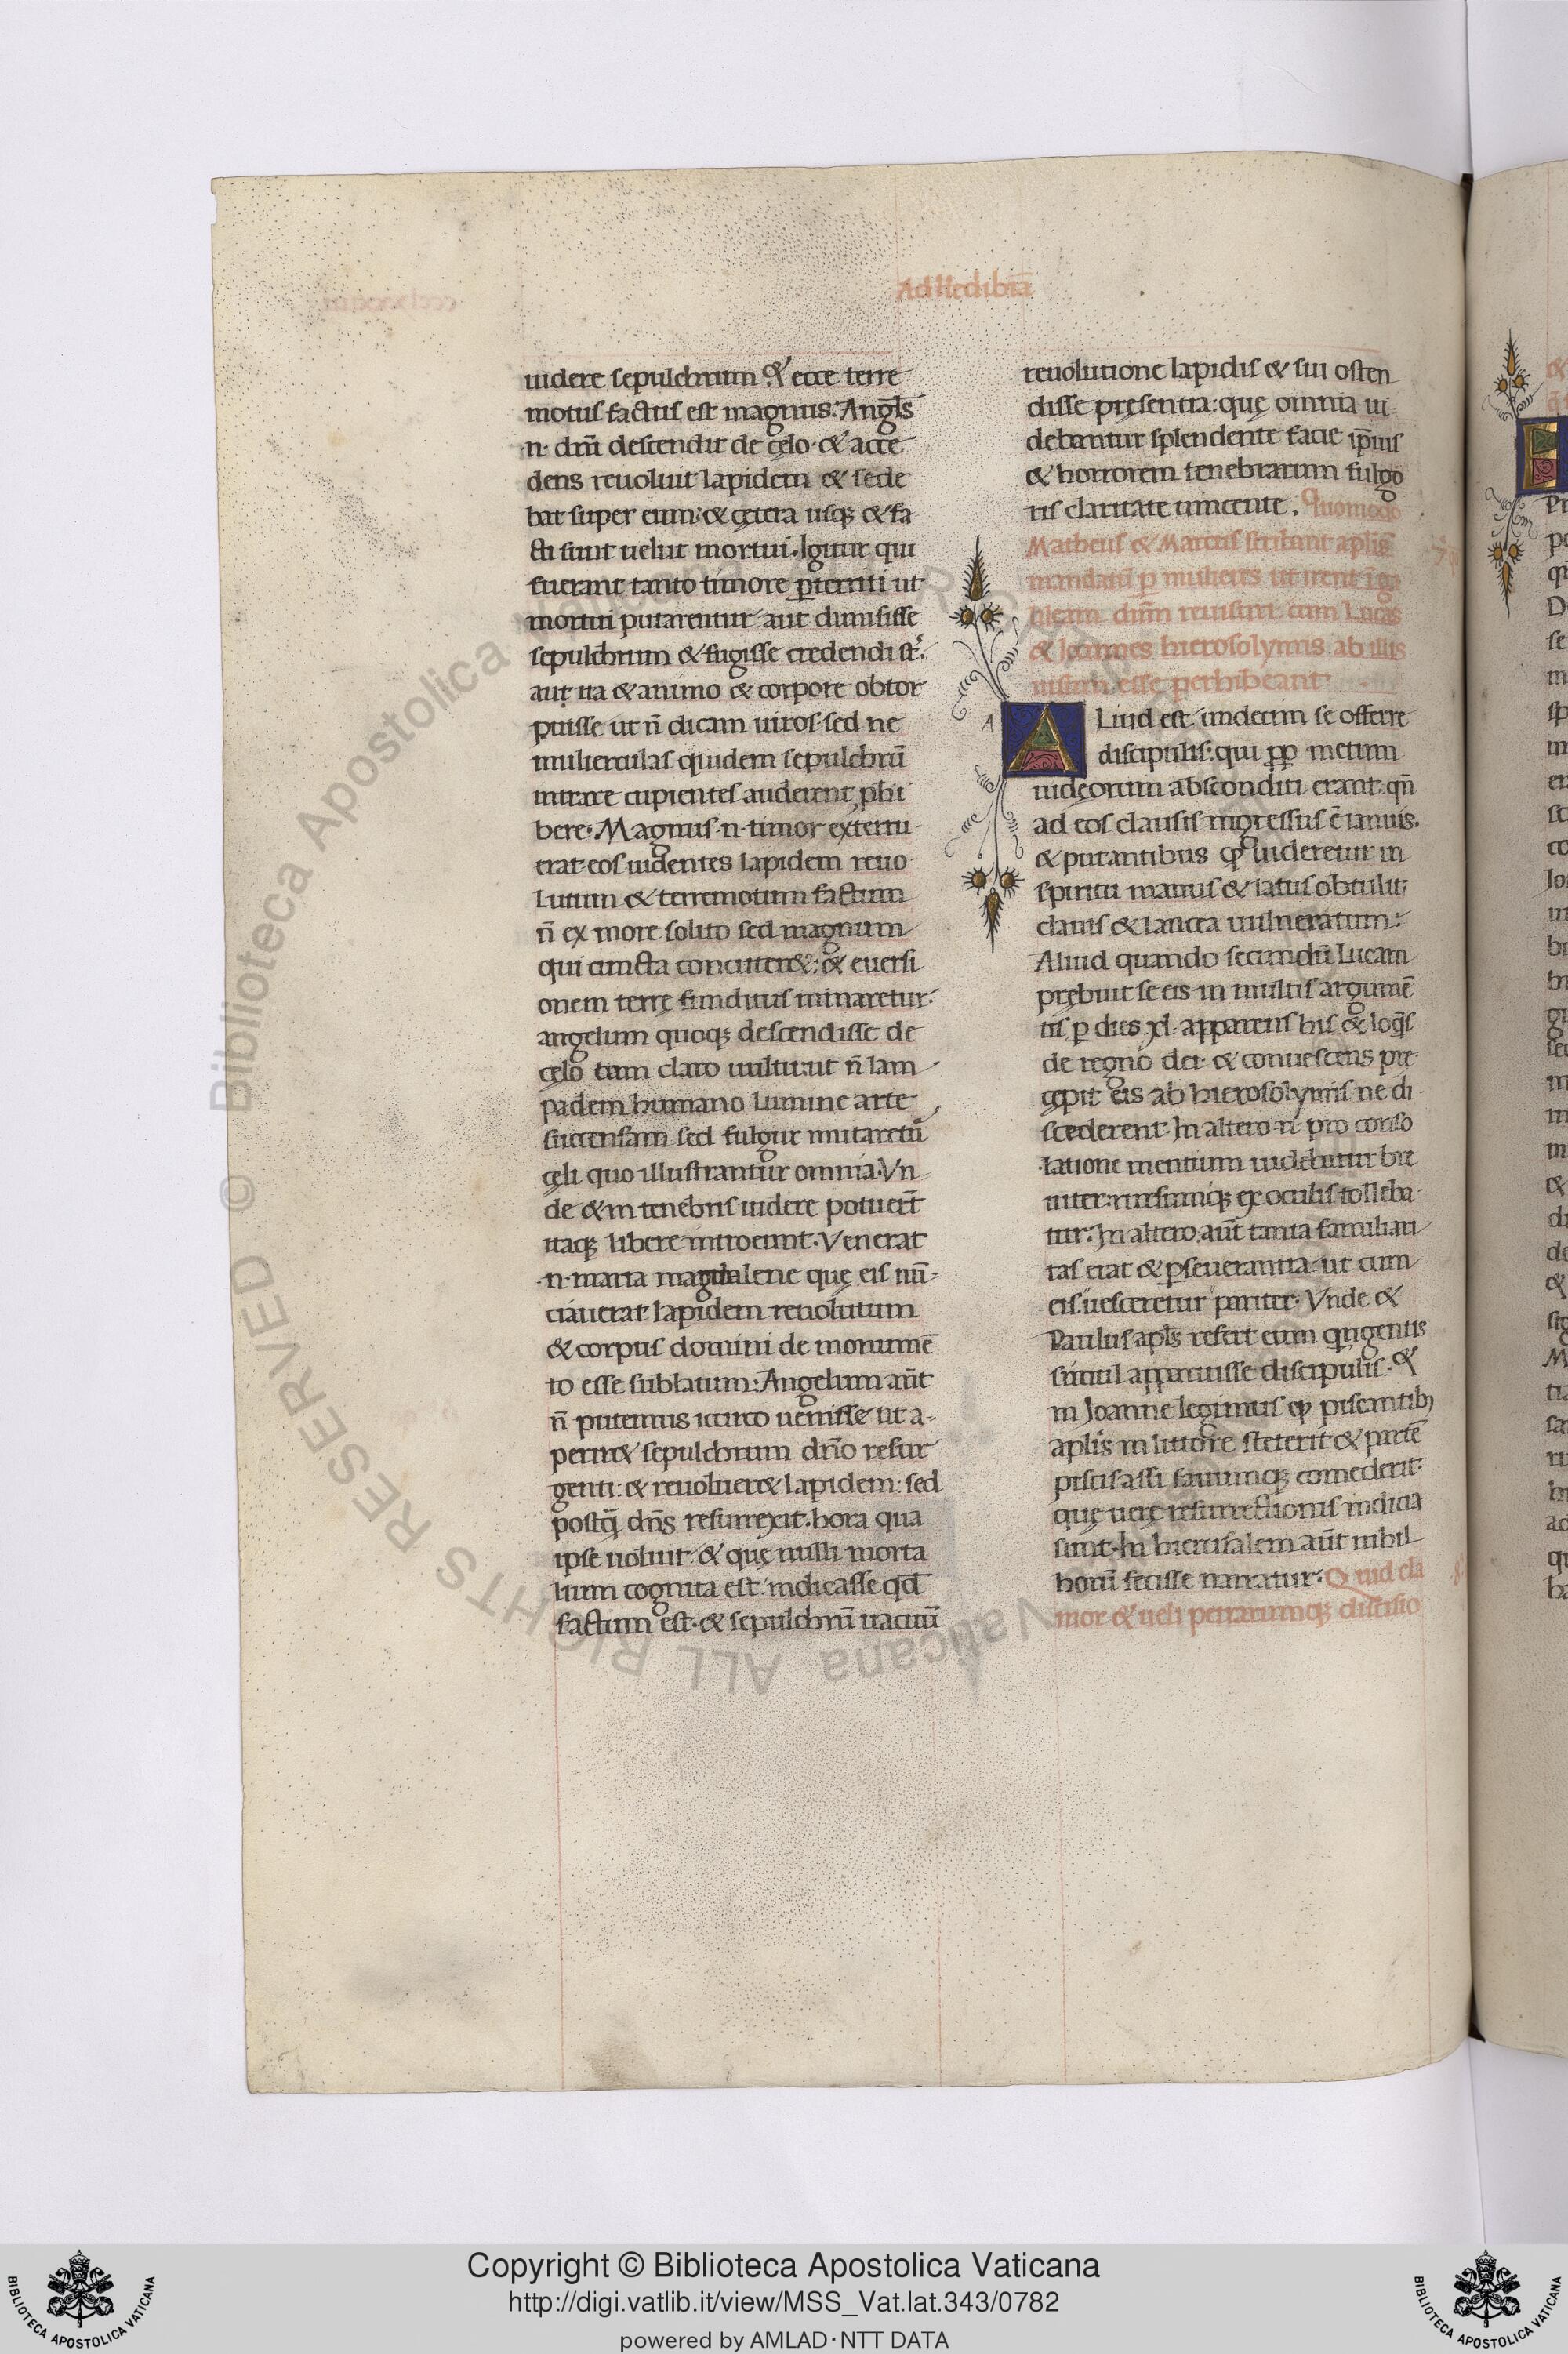 Ad Hedibiā
uidere sepulchrum & ecce terre
motus factus est magnus: Angl̄s
·n· dn̄i descendit de cęlo· & acce
dens reuoluit lapidem & sede
bat super eum: & cętera usq; & fa
cti sunt uelut mortui. Igitur qui
fuerant tanto timore p̄territi ut
mortui putarentur aut dimisisse
sepulchrum & fugisse credendi st̄:
aut ita & animo & corpore obtor
puisse ut n̄ dicam uiros sed ne
mulierculas quidem sepulchrū
intrare cupientes auderent phi
bere: Magnus ·n· timor exterru
erat eos uidentes lapidem reuo
lutum & terremotum factum
n̄ ex more solito sed magnum
qui cuncta concuter&: & euersi
onem terrę funditus minaretur·
angelum quoq; descendisse de
cęlo tam claro uultu: ut n̄ lam
padem humano lumine arte
succensam sed fulgur mutaretū
cęli quo illustrantur omnia· Vn
de & in tenebris uidere potuert̄
itaq; libere introeunt· Venerat
·n· maria magdalene quę eis nū
ciauerat lapidem reuolutum
& corpus domini de monumē
to esse sublatum: Angelum aūt
n̄ putemus iccirco uenisse ut a-
perir& sepulchrum dn̄o resur
genti: & reuoluer& lapidem: sed
postq̄ dn̄s resurrexit· hora qua
ipse uoluit & quę nulli morta
lium cognita est: indicasse qd̄
factum est· & sepulchrū uacuū
reuolutione lapidis & sui osten
disse pręsentia: quę omnia ui-
debantur splendente facie ip̄ius
& horrorem tenebrarum fulgo
ris claritate uincente. Quomodo
Matheus & Marcus scribant aplis̄
mandatū p mulieres ut irent ī ga
lileam dn̄m reuisuri cum Lucas
& Joannes hierosolymis ab illis
uisum esse perhibeant
A
ALiud est undecim se offerre
discipulis: qui pp metum
iudęorum absconditi erant: qn̄
ad eos clausis ingressus ē ianuis.
& putantibus qp uideretur in
spiritu manus & latus obtulit
clauis & lancea uulneratum:
Aliud quando secundū Lucam
prębuit se eis in multis argumē
tis p dies xl· apparens his & loq̄s
de regno dei· & conuescens pre
cępit eis ab hierosolymis ne di
scederent· In altero ·n· pro conso
latione mentium uidebatur bre
uiter: rursumq; ex oculis tolleba
tur: In altero aūt tanta familiari
tas erat & pseuerantia: ut cum
eis uesceretur pariter· Vnde &
Paulus apl̄s refert eum qngentis
simul apparuisse discipulis· &
in Joanne legimus qp piscantib;
aplis in littore steterit & partē
piscis assi fauumq; comederit·
quę uerę resurrectionis indicia
sunt· In hierusalem aūt nihil
horū fecisse narratur: Quid cla
mor & ueli petrarumq; discisio
Copyright © Biblioteca Apostolica Vaticana
http://digi.vatlib.it/view/MSS_Vat.lat.343/0782
powered by AMLAD·NTT DATA
BIBLIOTECA APOSTOLICA VATICANA
BIBLIOTECA APOSTOLICA VATICANA
© Biblioteca Apostolica Vaticana ALL RIGHTS RESERVED